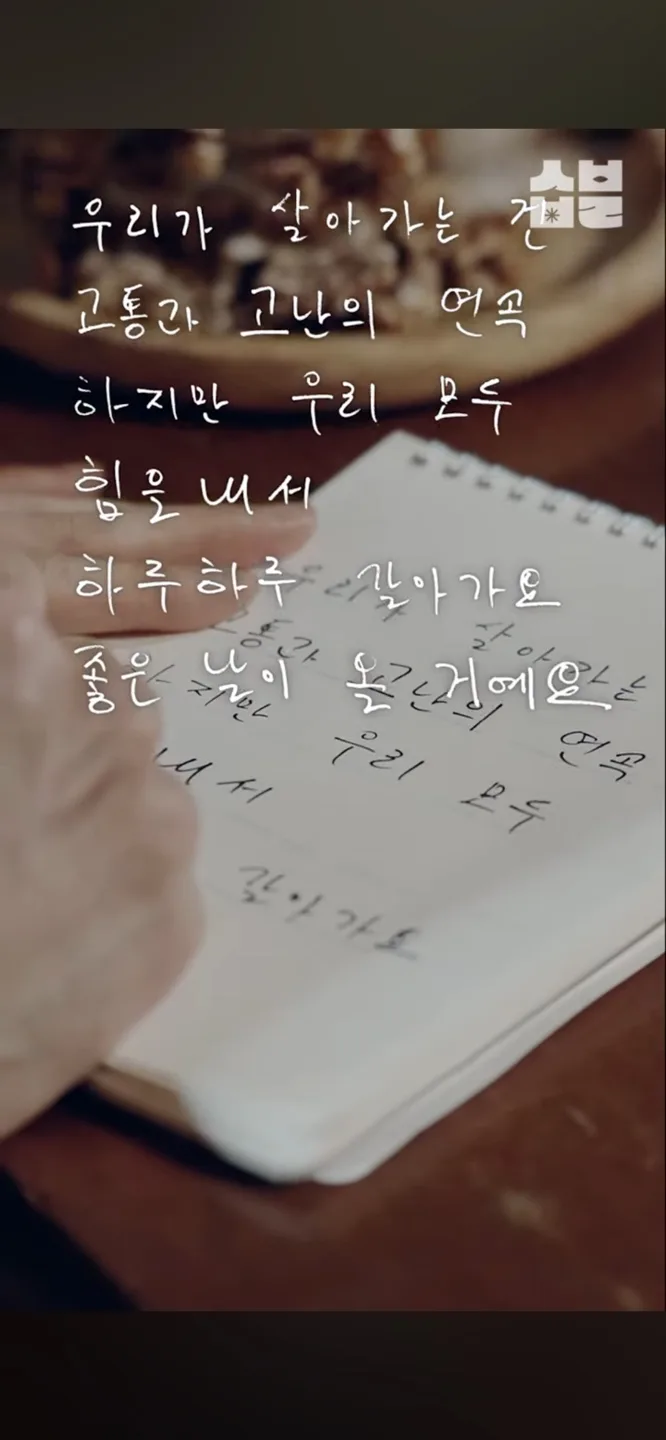 우리가 살아가는 건
고통과 고난의 연곡
하지만 우리 모두
힘을 내서
하루하루 갈아가요
좋은 날이 올 거에요
우리가 살아가는
통과 고난의 연곡
지만 우리 모두
내서
갈아가요